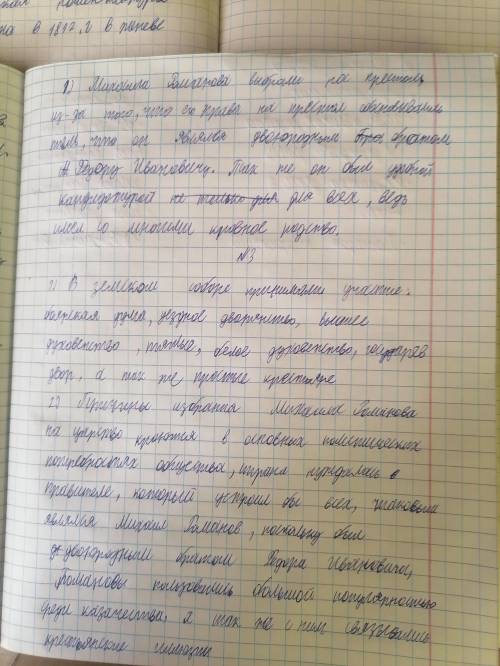 на в 1817 г в
1) Михаила Романова выбрали на престол
из-за того, что его права на престол
тем, что он являлся двоюродным братом
Федору Ивановичу. Так же он был удобной
кандидатурой не только для для всех, ведь
имел со многими кровное родство.
№3
1) В земском соборе принимали участие:
боярская дума, уездное дворянство, высшее
духовенство, белое духовенство, государев
двор, а так же простые крестьяне
2) Причины избрания Михаила Романова
на царство кроются в основных политических
потребностях общества, страна нуждалась в
правителе, который устроил бы всех, таковым
являлся Михаил Романов, поскольку был
двоюродным братом Федора Ивановича,
Романовы пользовались большой популярностью
среди казачества, а так же с ним связывались
крестьянские